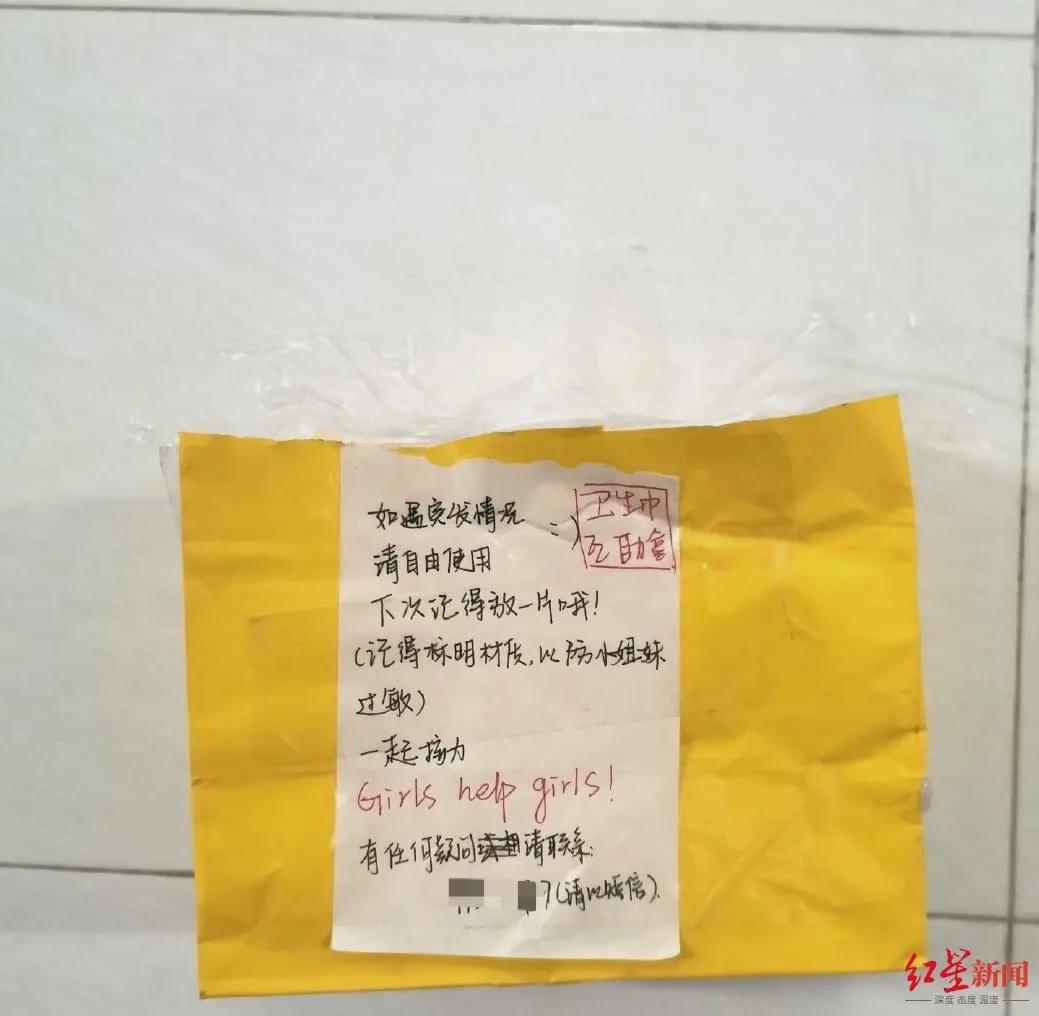 如遇突发情况 =>
卫生巾
互助盒
请自由使用
下次记得放一片哦！
（记得标明材质，以防小姐妹
过敏）
一起接力
Girls help girls！
有任何疑问请联系：
7（请以短信）.
红星新闻
深度 态度 温度